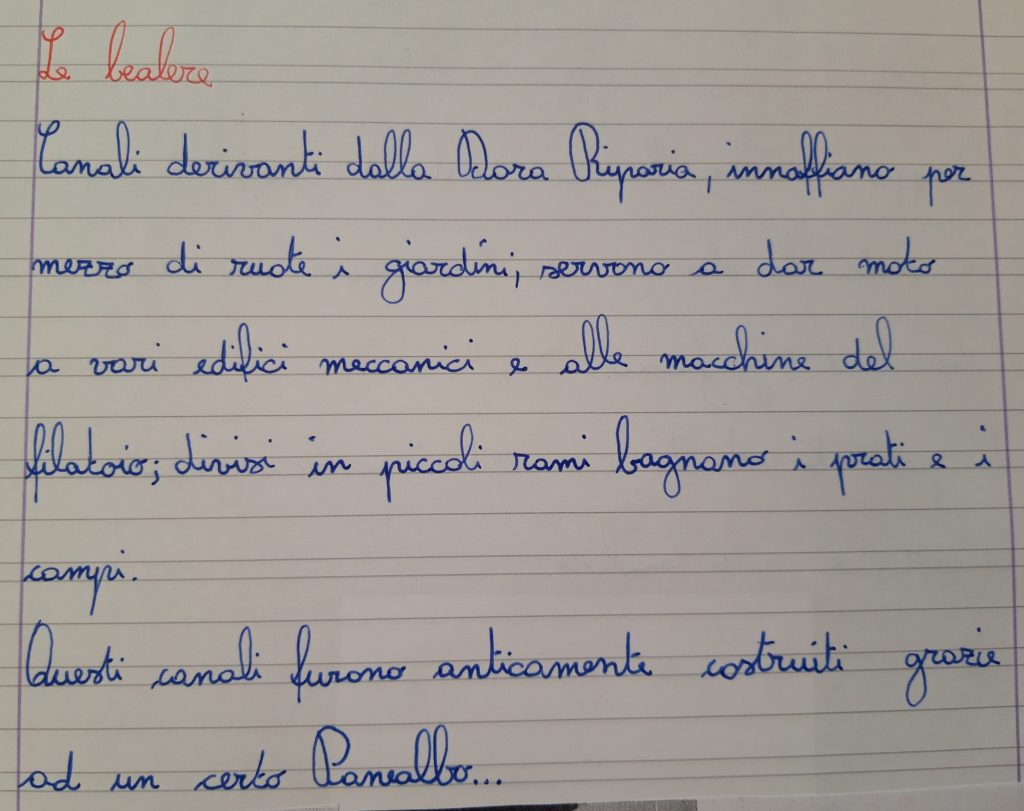 Le bealere
Canali derivanti dalla Dora Riparia, innaffiano per
mezzo di ruote i giardini, servono a dar moto
a vari edifici meccanici e alle macchine del
filatoio; divisi in piccoli rami bagnano i prati e i
campi.
Questi canali furono anticamente costruiti grazie
ad un certo Panealbo...